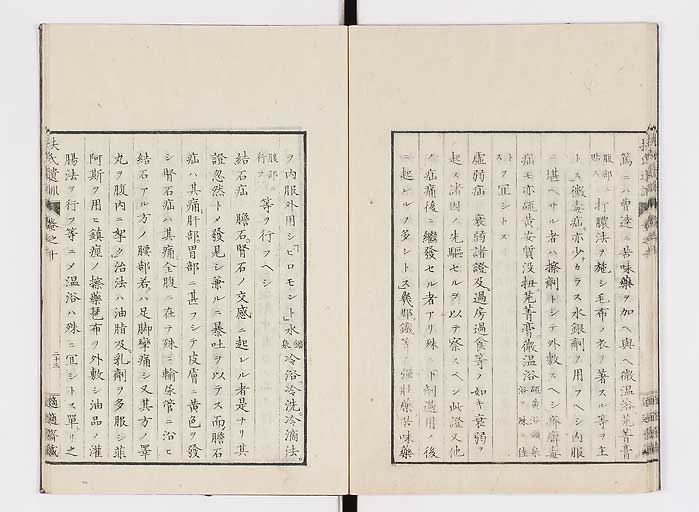 篤ニハ曹達ニ苦味藥ヲ加ヘ與ヘ微温浴芫菁膏
腹部ニ貼ス打膿法ヲ施シ毛布ノ衣ヲ著スル等ヲ主
トス黴毒症亦少カラス水銀劑ヲ用フヘシ内服
ニ堪ヘサル者ハ擦劑トシテ外敷スヘシ疥癬毒
症モ亦硫黄安質没扭芫菁膏微温浴硫黄浴鑛泉浴ノ殊ニ佳
トヲ宜シトス
虚弱症 衰弱諸證及過房過食等ノ如キ衰弱ヲ
起ス諸因ノ先驅セルヲ以テ察スヘシ此證又他
ノ症痛後ニ繼發セル者アリ殊ニ下劑過用ノ後
ニ起レルヲ多シトス幾那鐵等ノ強壯藥苦味藥
ヲ内服外用シピロモント水鑛泉冷浴冷洗冷滴法
腹部ニ行フ等ヲ行フヘシ
結石症 膽石腎石ノ交感ニ起レル者是ナリ其
證忽然トメ發見シ兼ルニ暴吐ヲ以テス而膽石
症ハ其痛肝部胃部ニ甚フシテ皮膚ニ黄色ヲ發
シ腎石症ハ其痛全腹ニ在テ殊ニ輸尿管ニ沿ヒ
結石アル方ノ腰部若ハ足脚攣痛シ又其方ノ睪
丸ヲ腹内ニ牽ク治法ハ油脂及乳劑ヲ多服シ菲
阿斯ヲ用ヒ鎮痙ノ擦藥琶布ヲ外敷シ油品ノ灌
腸法ヲ行フ等ニノ温浴ハ殊ニ宜シトス單リ之
扶氏遺訓 卷之十 二十三 適適齋藏